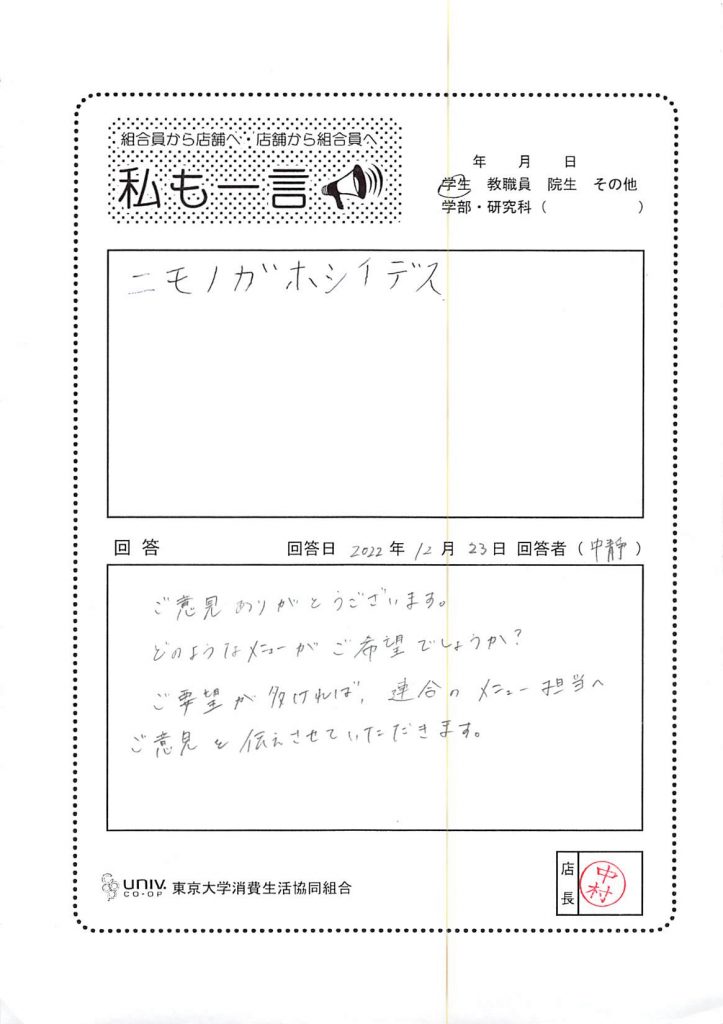 組合員から店舗へ・店舗から組合員へ
私も一言
年 月 日
学生 教職員 院生 その他
学部・研究科( )
ニモノガホシイデス
回答 回答日 2022年 12月 23日 回答者(中静)
ご意見ありがとうございます。
どのようなメニューがご希望でしょうか?
ご要望が多ければ、連合のメニュー担当へ
ご意見を伝えさせていただきます。
UNIV. CO-OP 東京大学消費生活協同組合
店長
中村